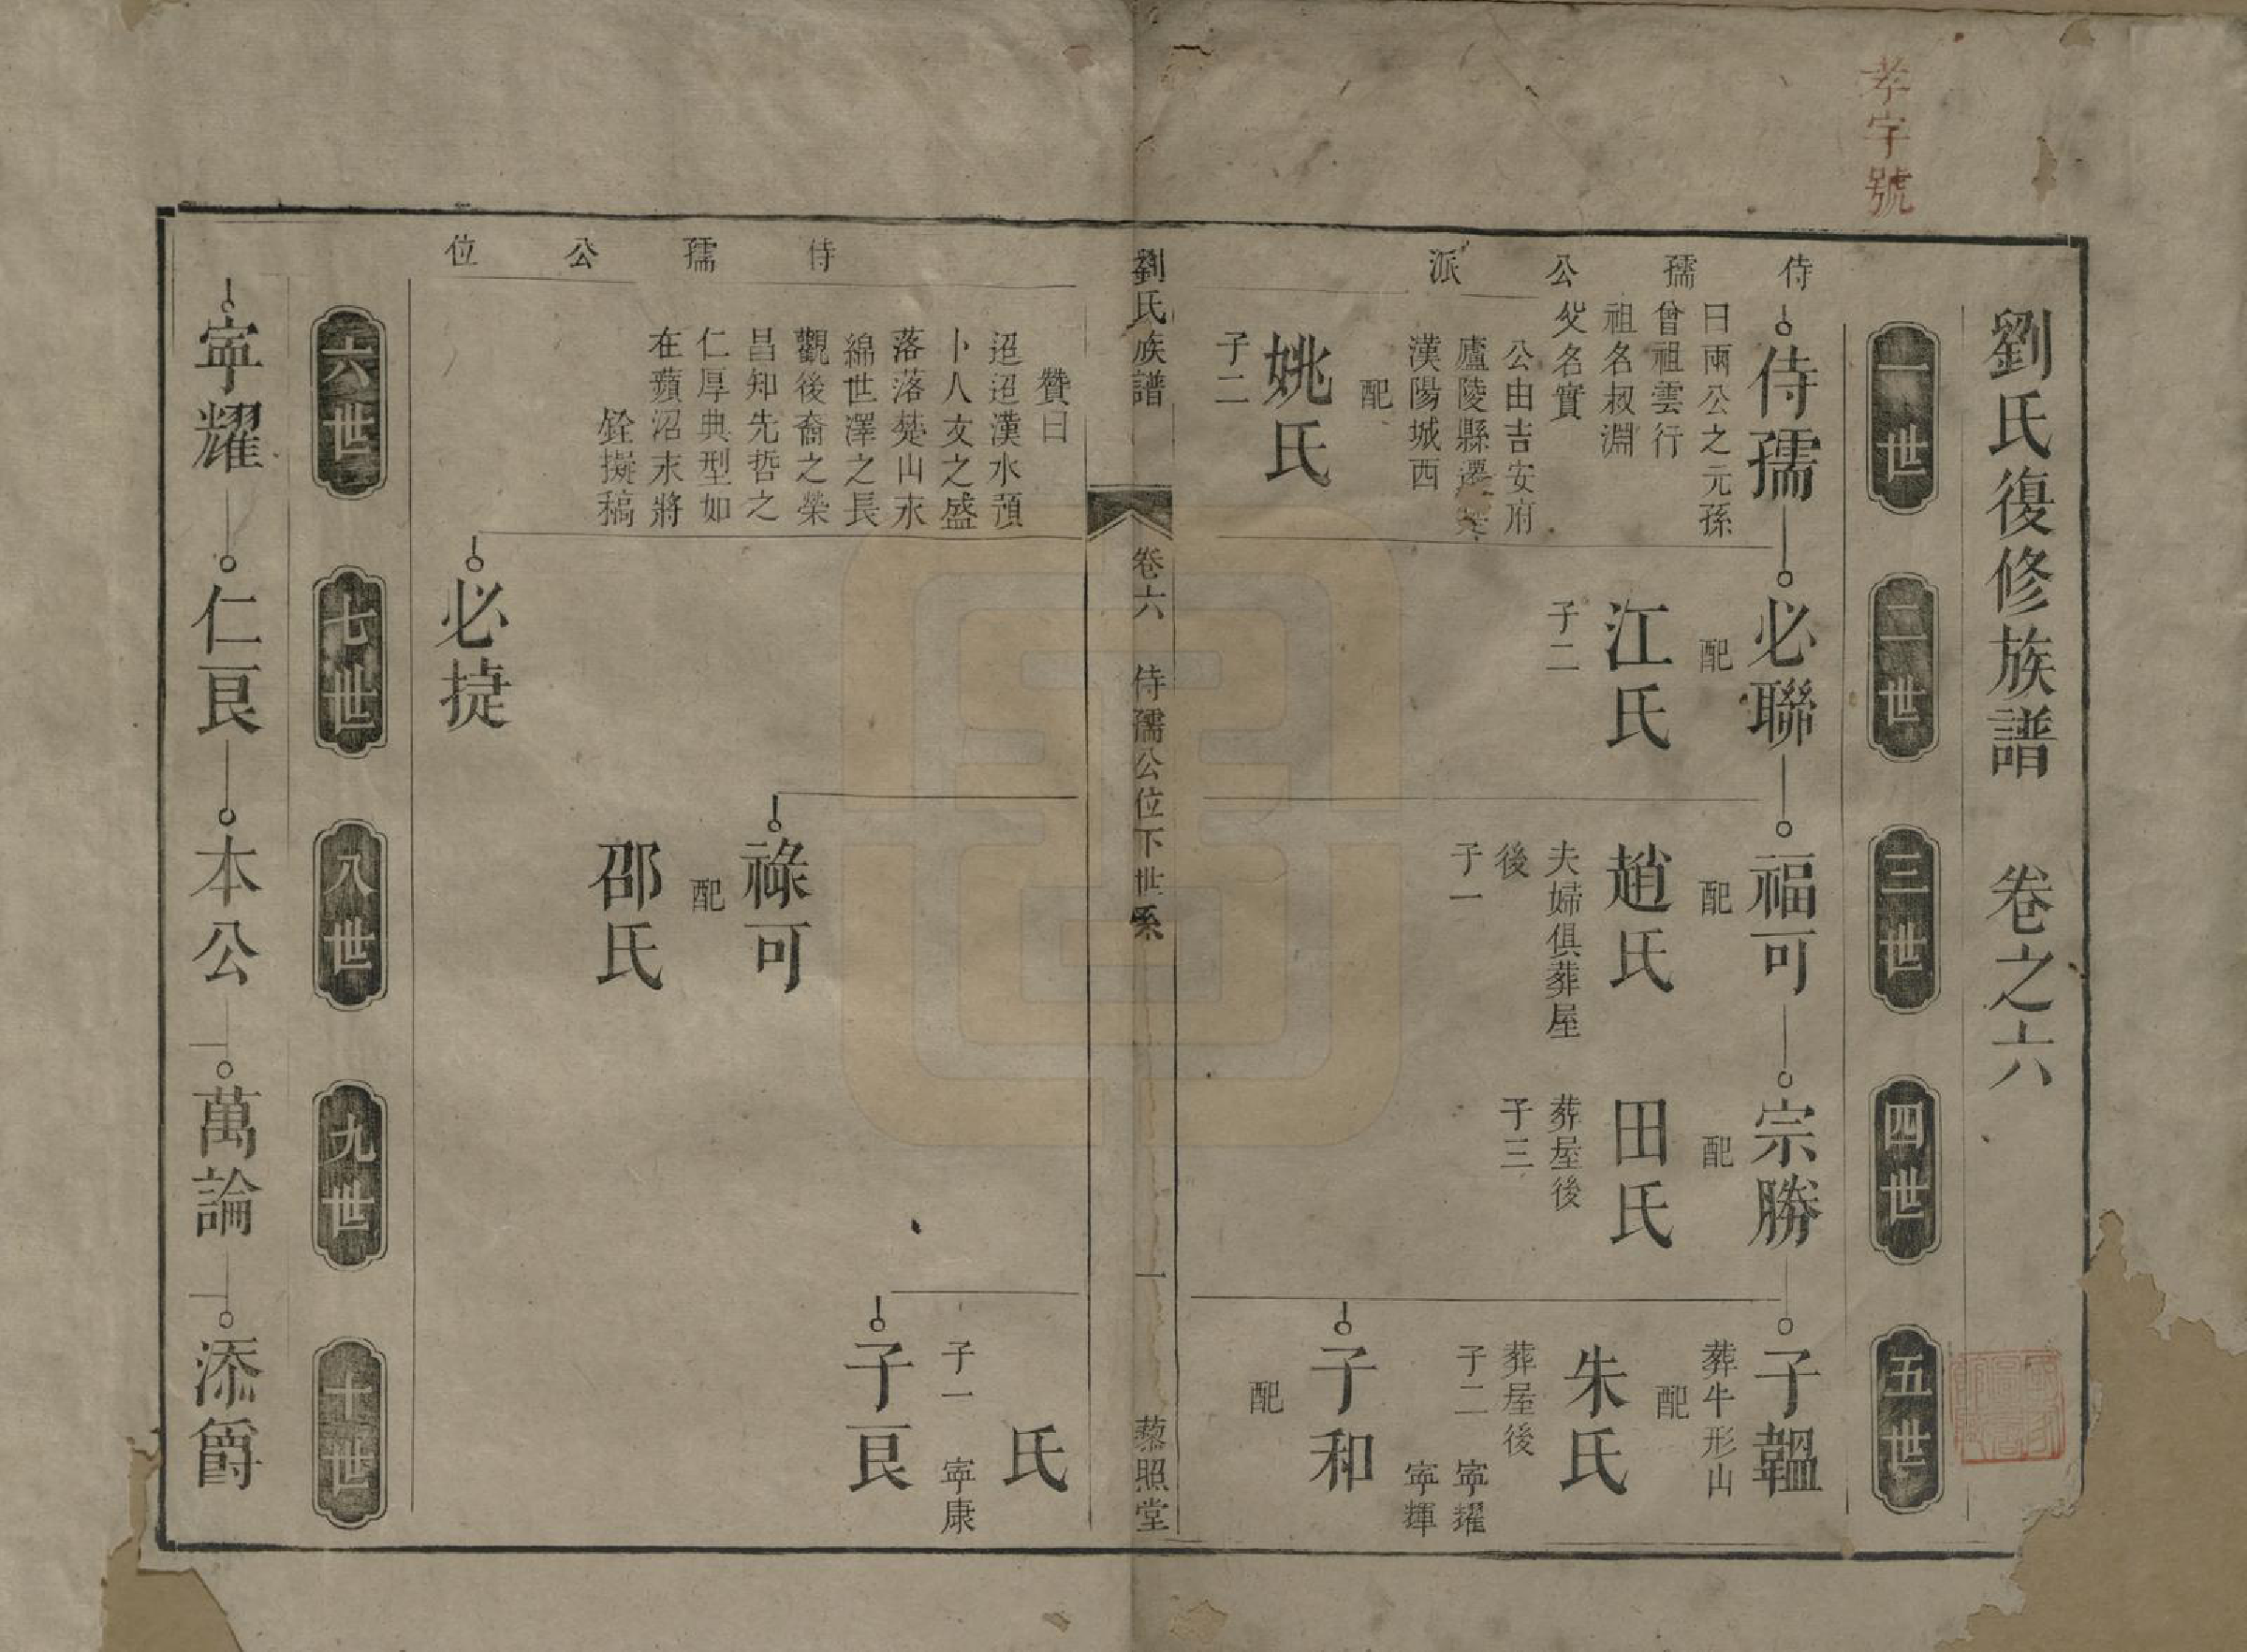 孝字號
劉氏復修族譜 卷之六
一世
二世
三世
四世
五世
侍孺公派
侍孺
曰兩公之元孫
曾祖雲行
祖名叔淵
父名實
公由吉安府
廬陵縣遷
漢陽城西
配
姚氏
子二
必聯
配
江氏
子二
福可
配
趙氏
夫婦俱葬屋
後
子一
宗勝
配
田氏
葬屋後
子三
子韞
葬牛形山
配
朱氏
葬屋後
子二 寧耀
寧輝
子和
配
劉氏族譜 卷六 侍孺公位下世系 一 藜照堂
侍孺公位
贊曰
迢迢漢水預
卜人文之盛
落落楚山永
綿世澤之長
觀後裔之榮
昌知先哲之
仁厚典型如
在蘋沼永將
銓擬稿
必捷
祿可
配
邵氏
氏
子一 寧康
子良
六世
七世
八世
九世
十世
寧耀
仁良
本公
萬論
添爵